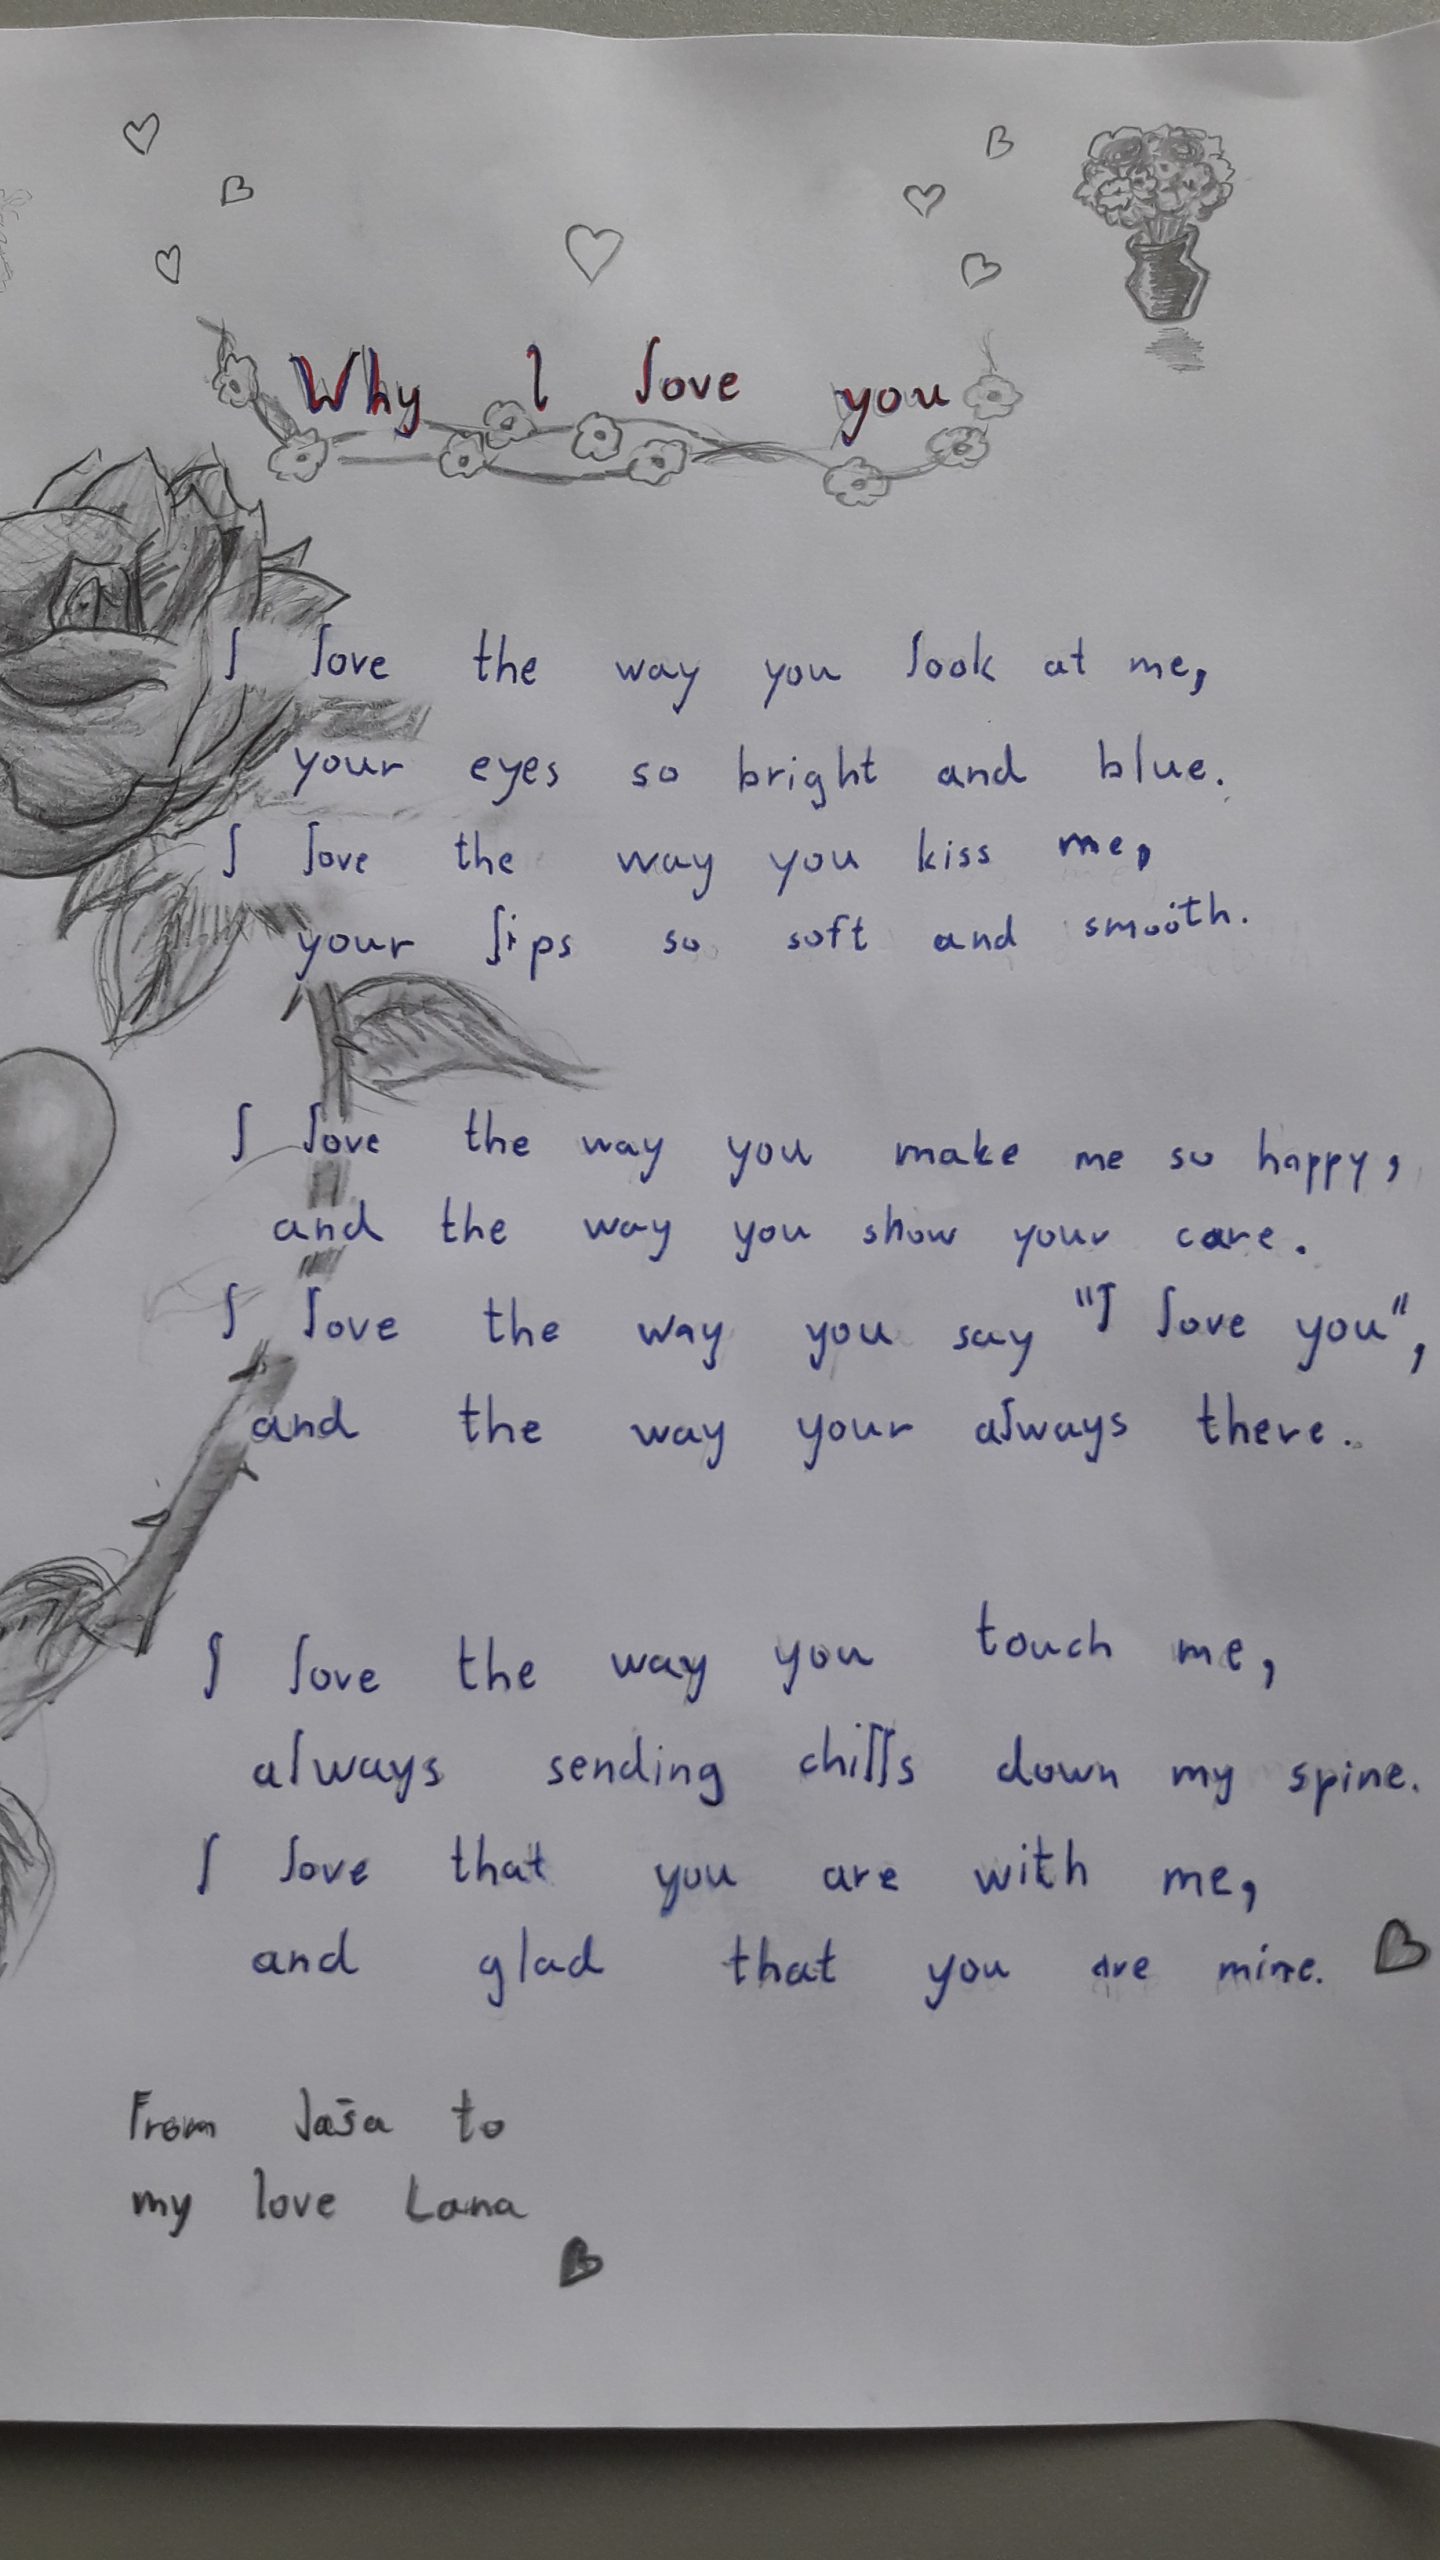 Why I love you
I love the way you look at me,
your eyes so bright and blue.
I love the way you kiss me,
your lips so soft and smooth.
I love the way you make me so happy,
and the way you show your care.
I love the way you say "I love you",
and the way your always there.
I love the way you touch me,
always sending chills down my spine.
I love that you are with me,
and glad that you are mine.
From Jaša to
my love Lana